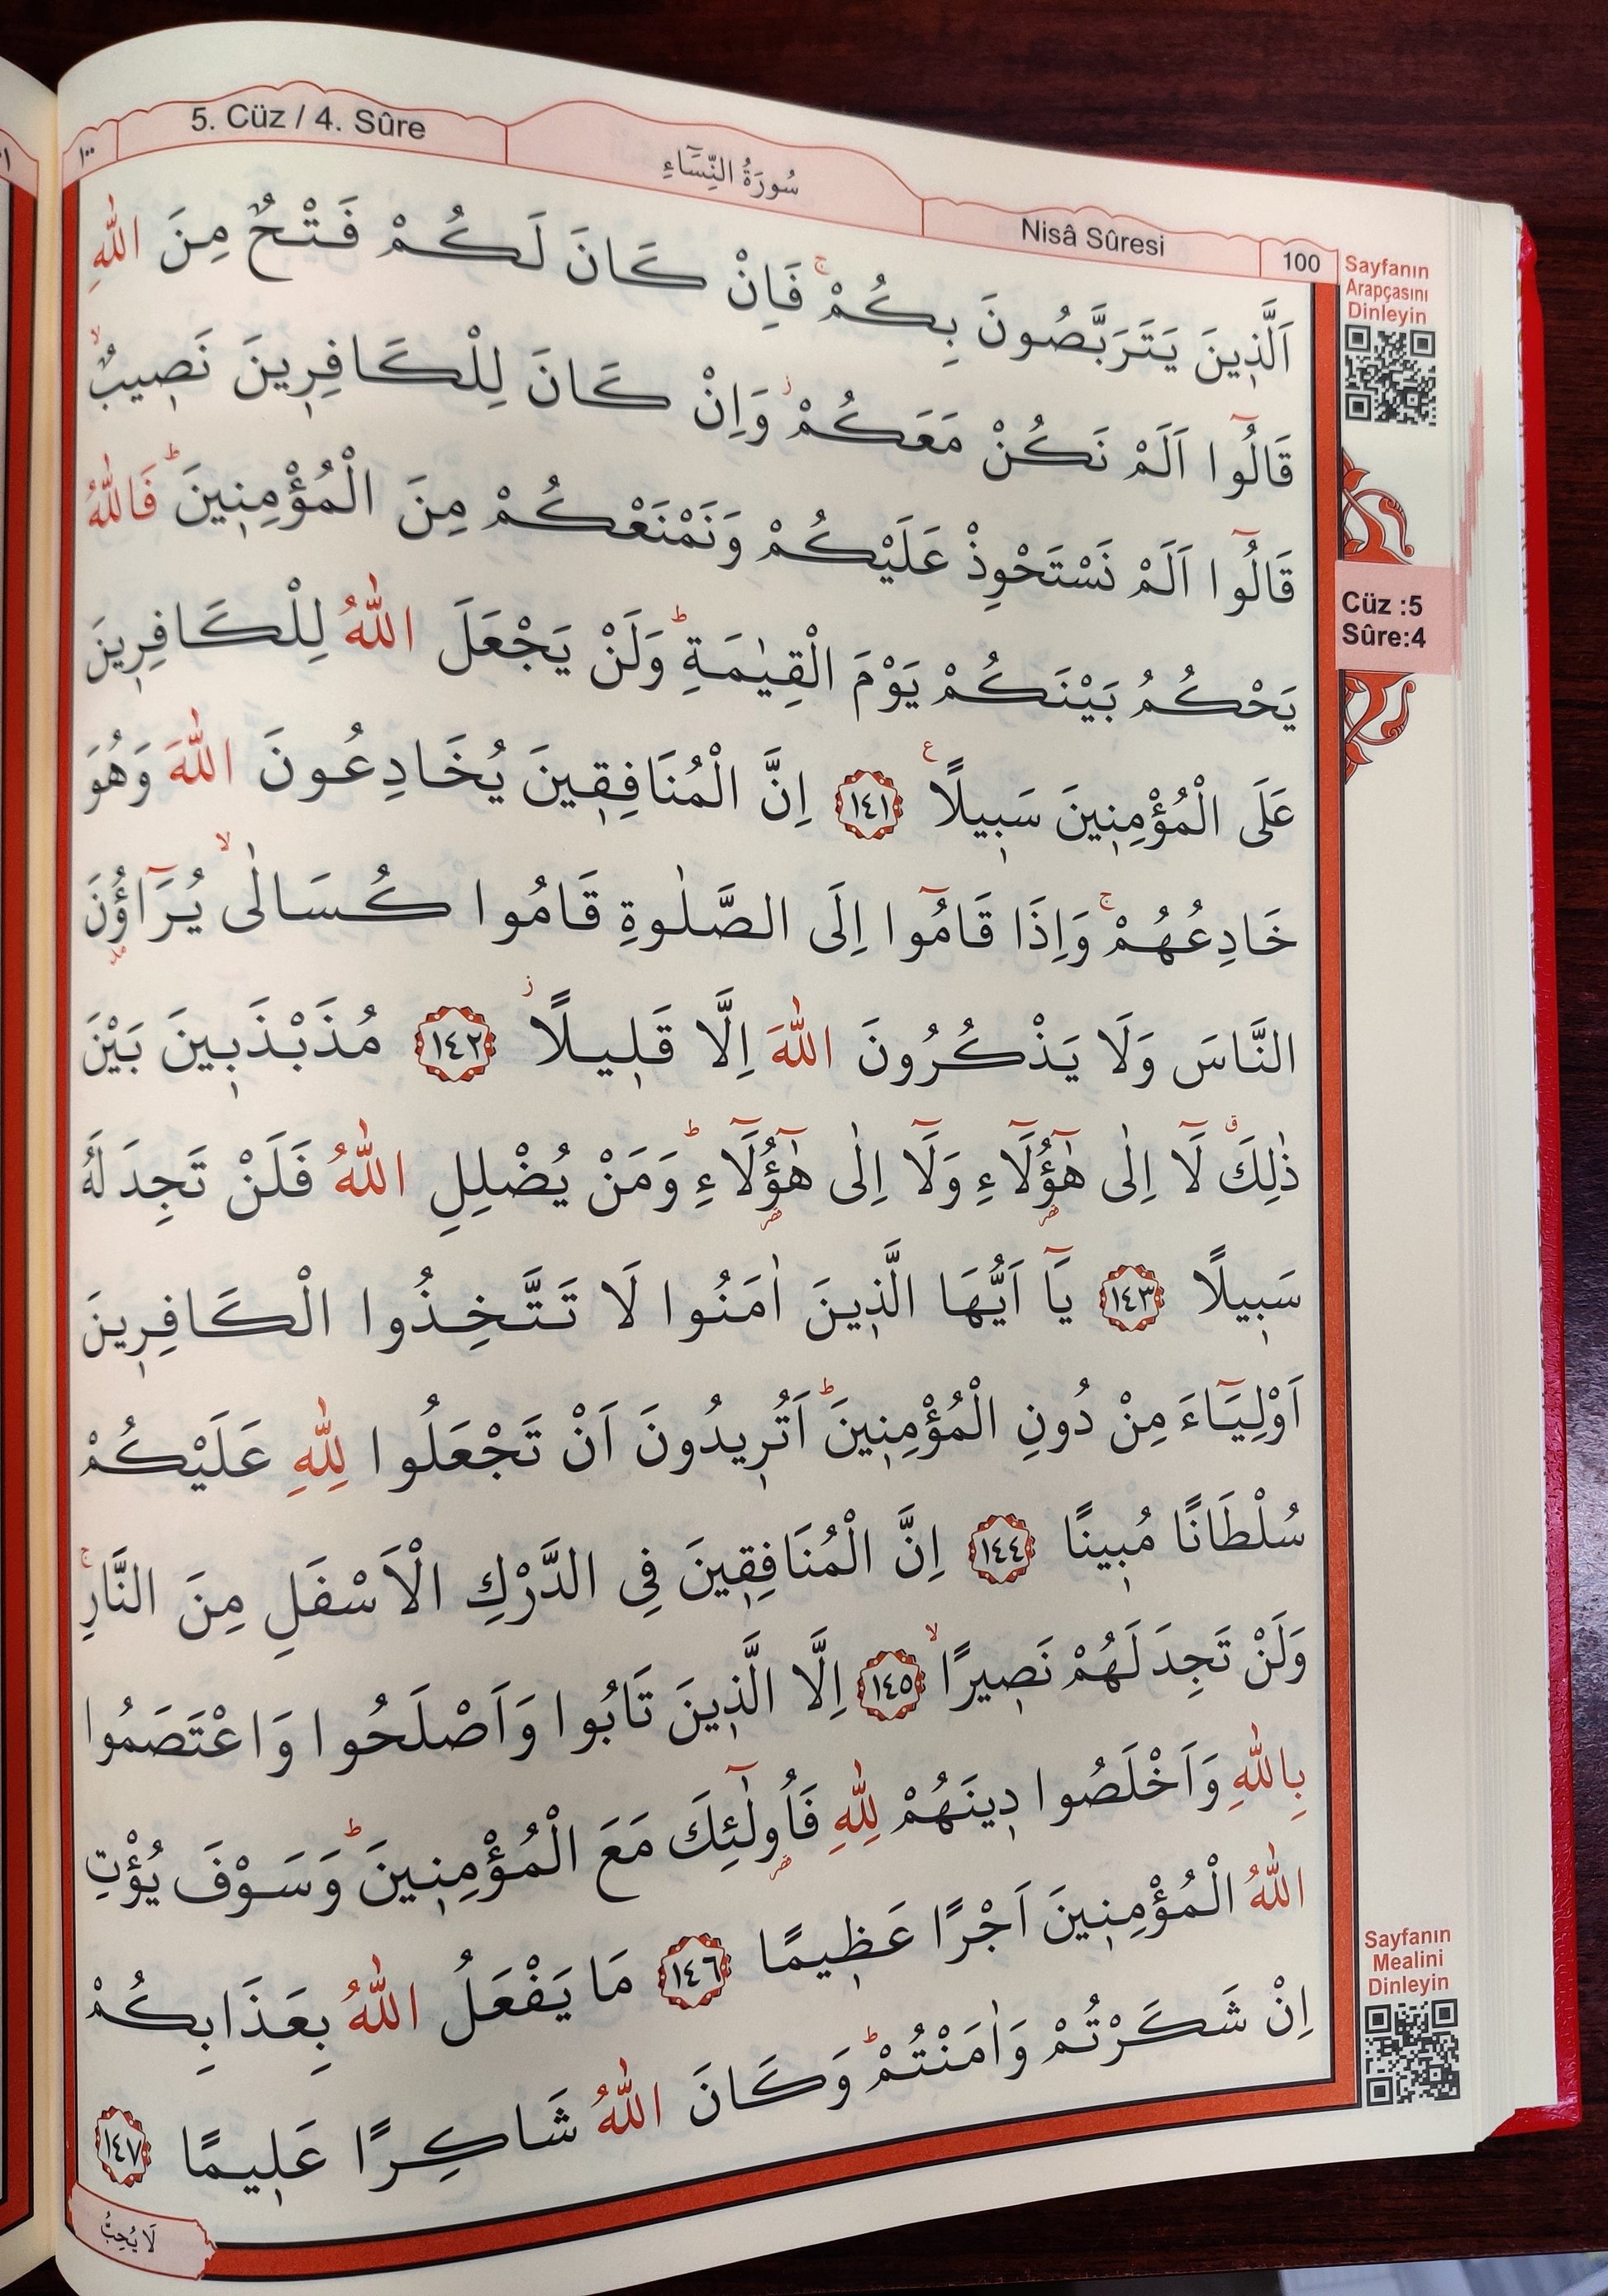 5. Cüz / 4. Sûre
١٠٠
سُورَةُ النِّسَاءِ
Nisâ Sûresi
100
اَلَّذ۪ينَ يَتَرَبَّصُونَ بِكُمْۚ فَاِنْ كَانَ لَكُمْ فَتْحٌ مِنَ اللّٰهِ
قَالُٓوا اَلَمْ نَكُنْ مَعَكُمْۘ وَاِنْ كَانَ لِلْكَافِر۪ينَ نَص۪يبٌۙ
قَالُٓوا اَلَمْ نَسْتَحْوِذْ عَلَيْكُمْ وَنَمْنَعْكُمْ مِنَ الْمُؤْمِن۪ينَۜ فَاللّٰهُ
يَحْكُمُ بَيْنَكُمْ يَوْمَ الْقِيٰمَةِۜ وَلَنْ يَجْعَلَ اللّٰهُ لِلْكَافِر۪ينَ
عَلَى الْمُؤْمِن۪ينَ سَب۪يلًا۟ ﴿١٤١﴾ اِنَّ الْمُنَافِق۪ينَ يُخَادِعُونَ اللّٰهَ وَهُوَ
خَادِعُهُمْۚ وَاِذَا قَامُٓوا اِلَى الصَّلٰوةِ قَامُوا كُسَالٰىۙ يُرَٓاؤُ۫نَ
النَّاسَ وَلَا يَذْكُرُونَ اللّٰهَ اِلَّا قَل۪يلًاۘ ﴿١٤٢﴾ مُذَبْذَب۪ينَ بَيْنَ
ذٰلِكَۗ لَٓا اِلٰى هٰٓؤُ۬لَٓاءِ وَلَٓا اِلٰى هٰٓؤُ۬لَٓاءِۜ وَمَنْ يُضْلِلِ اللّٰهُ فَلَنْ تَجِدَ لَهُ
سَب۪يلًا ﴿١٤٣﴾ يَٓا اَيُّهَا الَّذ۪ينَ اٰمَنُوا لَا تَتَّخِذُوا الْكَافِر۪ينَ
اَوْلِيَٓاءَ مِنْ دُونِ الْمُؤْمِن۪ينَۜ اَتُر۪يدُونَ اَنْ تَجْعَلُوا لِلّٰهِ عَلَيْكُمْ
سُلْطَانًا مُب۪ينًا ﴿١٤٤﴾ اِنَّ الْمُنَافِق۪ينَ فِي الدَّرْكِ الْاَسْفَلِ مِنَ النَّارِۚ
وَلَنْ تَجِدَ لَهُمْ نَص۪يرًاۙ ﴿١٤٥﴾ اِلَّا الَّذ۪ينَ تَابُوا وَاَصْلَحُوا وَاعْتَصَمُوا
بِاللّٰهِ وَاَخْلَصُوا د۪ينَهُمْ لِلّٰهِ فَاُو۬لٰٓئِكَ مَعَ الْمُؤْمِن۪ينَۜ وَسَوْفَ يُؤْتِ
اللّٰهُ الْمُؤْمِن۪ينَ اَجْرًا عَظ۪يمًا ﴿١٤٦﴾ مَا يَفْعَلُ اللّٰهُ بِعَذَابِكُمْ
اِنْ شَكَرْتُمْ وَاٰمَنْتُمْۜ وَكَانَ اللّٰهُ شَاكِرًا عَل۪يمًا ﴿١٤٧﴾
لَا يُحِبُّ
Sayfanın
Arapçasını
Dinleyin
Cüz :5
Sûre:4
Sayfanın
Mealini
Dinleyin